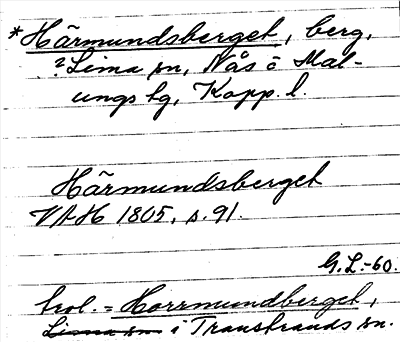 *Härmundsberget, berg,
? Lima sn, Nås o Mal-
ungs tg, Kopp. l.
Härmundsberget
VAH 1805, s. 91.
G.L.-60.
trol. = Horrmundberget,
Lima sn i Transtrands sn.